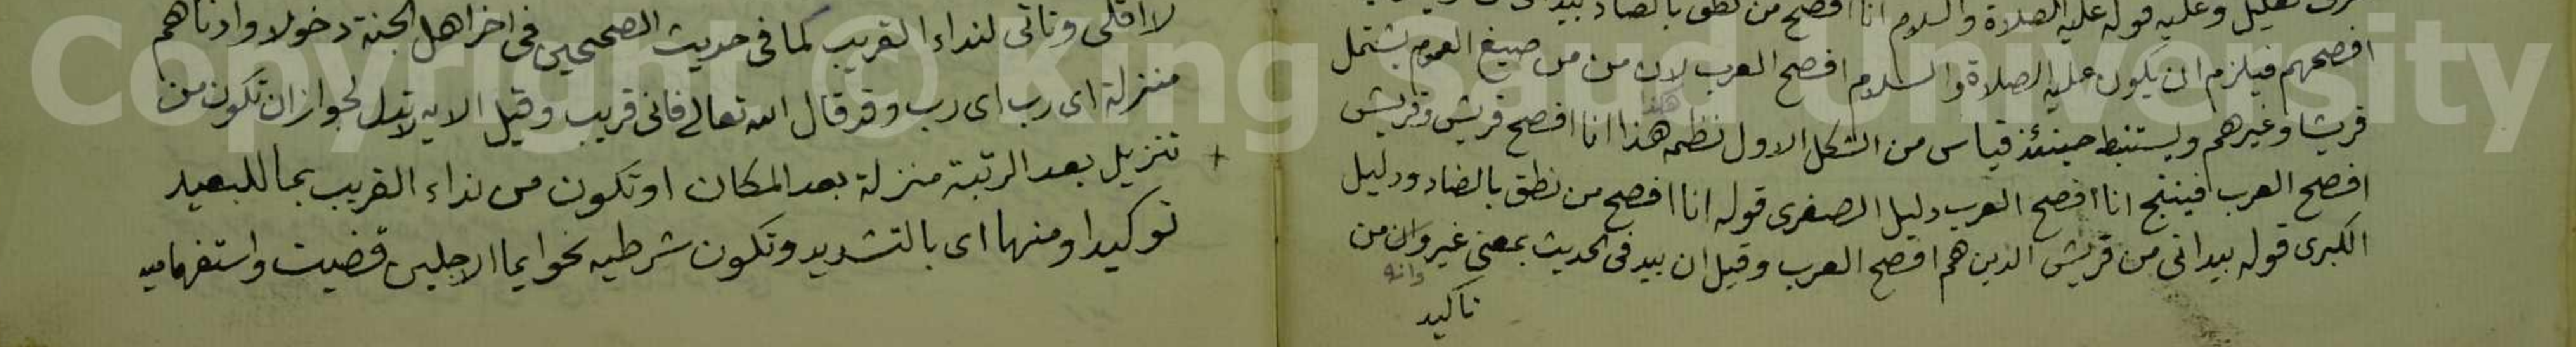 تعليل وعليه قوله عليه الصلاة والسلام انا افصح من نطق بالضاد
افصحهم فيلزم ان يكون عليه الصلاة والسلام افصح العرب لان من من صيغ العموم يشتمل
قريشا وغيرهم ويستنبط حينئذ قياس من الشكل الاول نظمه هذا انا افصح قريش وقريش
هكذا
افصح العرب فينتج انا افصح العرب دليل الصغرى قوله انا افصح من نطق بالضاد ودليل
الكبرى قوله بيد انى من قريش الذين هم افصح العرب وقيل ان بيد فى الحديث بمعنى غير وان من
وانه
تاكيد
لا اقلى وتاتى لنداء القريب كما فى حديث الصحيحين فى اخر اهل الجنة دخولا وادناهم
منزلة اى رب اى رب وقد قال الله تعالى فانى قريب وقيل الايه لاتدل لجواز ان تكون من
تنزيل بعد الرتبة منزلة بعد المكان او تكون من نداء القريب بما للبعيد
توكيدا ومنها اى بالتشديد وتكون شرطيه نحو ايما الاجلين قضيت واستفهاميه
Copyright © King Saud University